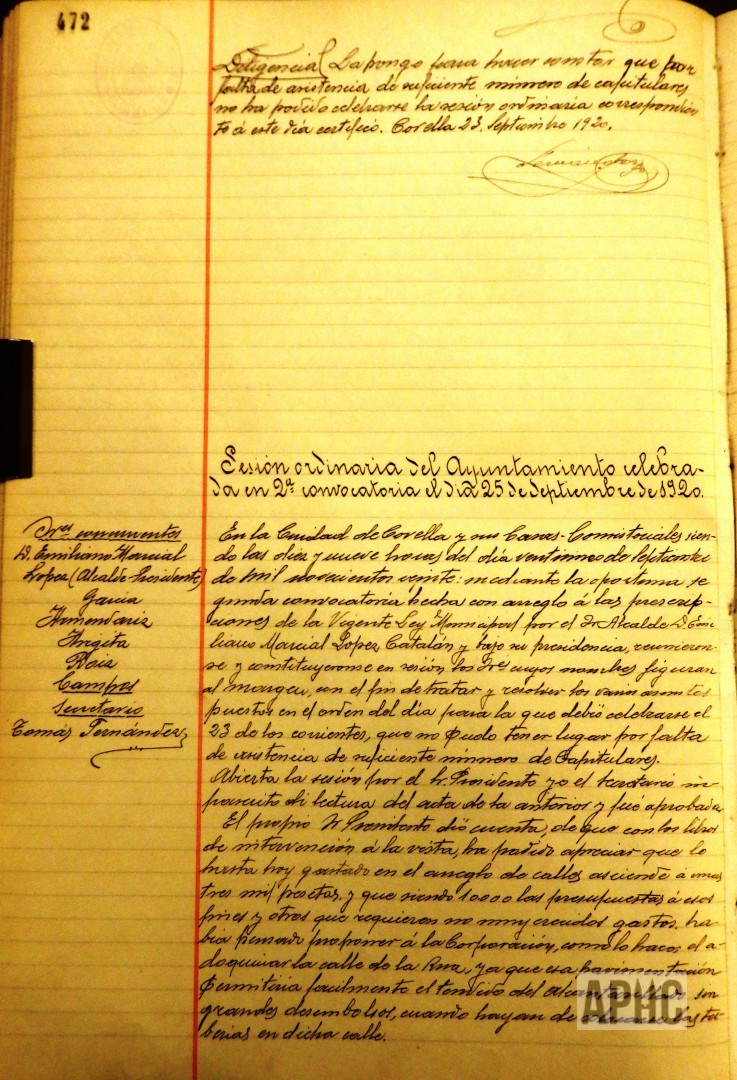 472
Diligencia La pongo para hacer constar que por
falta de asistencia de suficiente número de capitulares
no ha podido celebrarse la sesión ordinaria correspondien
te á este día certifico. Corella 23, Septiembre 1920.
Sesión ordinaria del Ayuntamiento celebra-
da en 2ª convocatoria el día 25 de Septiembre de 1920.
Sres concurrentes
D. Emiliano Marcial
Lopez (Alcalde Presidente)
Garcia
Armendariz
Angita
Campos
Secretario
Tomás Fernández
En la Ciudad de Corella y sus Casas-Consistoriales sien-
do las diez y nueve horas del día veinticinco de Septiembre
de mil novecientos veinte: mediante la oportuna se
gunda convocatoria hecha con arreglo á las prescrip-
ciones de la Vigente Ley Municipal por el Sr Alcalde D. Emi-
liano Marcial Lopez Catalán y bajo su presidencia, reunieron-
se y constituyeronse en sesión los Sres cuyos nombres figuran
al margen, con el fin de tratar y resolver los varios asuntos
puestos en el orden del dia para la que debió celebrarse el
23 de los corrientes, que no pudo tener lugar por falta
de asistencia de suficiente número de Capitulares.
Abierta la sesión por el Sr. Presidente yo el Secretario in-
frascrito di lectura del acta de la anterior y fué aprobada
El propio Sr Presidente dió cuenta, de que con los libros
de intervención á la vista, ha podido apreciar que lo
hasta hoy gastado en el arreglo de calles asciende á unas
tres mil pesetas, y que siendo 10000 las presupuestas á esos
fines y otros que requieren no muy crecidos gastos, ha-
bia pensado proponer á la Corporación, como lo hace, el a-
doquinar la calle de la Rua, ya que esa pavimentación
permitiria facilmente el tendido del alcantarillado, sin
grandes desembolsos, cuando hayan de colocarse las tu-
berias en dicha calle.
APHC